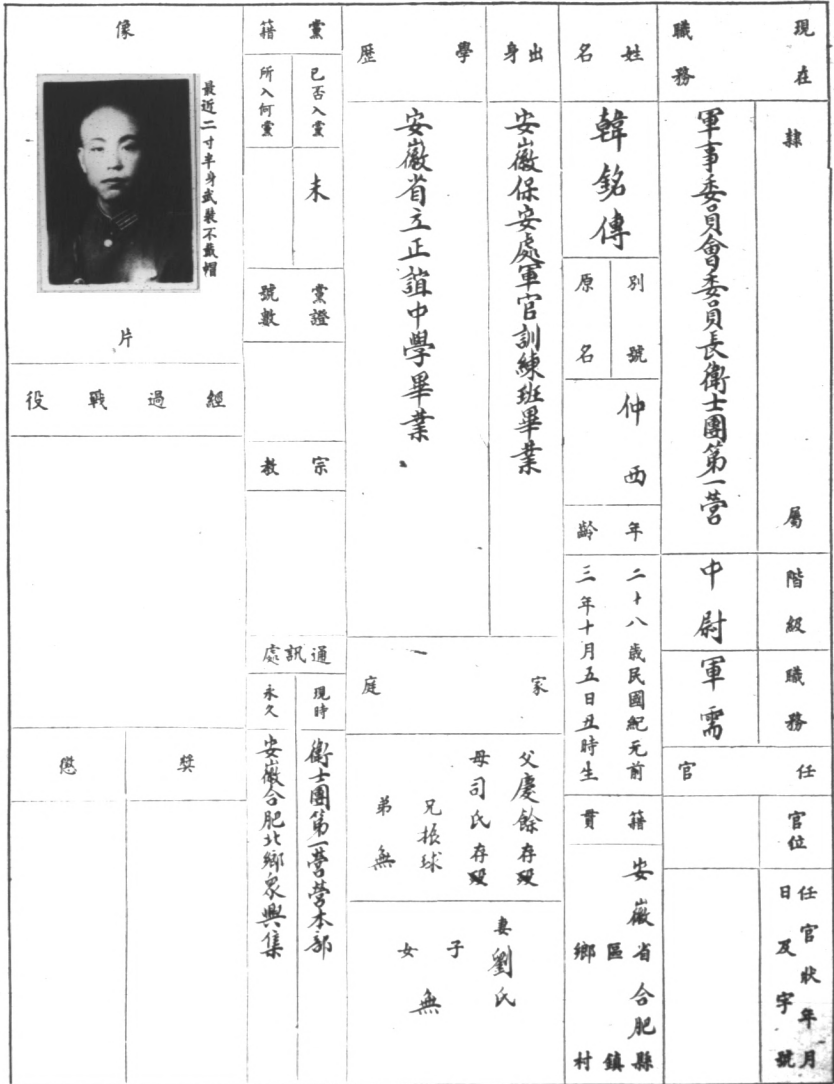 現在職務
隸屬
軍事委員會委員長衛士團第一營
階級
中尉
職務
軍需
任官
官位
任官狀年月日及字號
姓名
韓銘傳
別號
原名
仲西
年齡
二十八歲民國紀元前
三年十月五日丑時生
籍貫
安徽省合肥縣
區鎮
鄉村
出身
安徽保安處軍官訓練班畢業
學歷
安徽省立正誼中學畢業
家庭
父慶餘存歿
母司氏存歿
兄振球
弟無
妻劉氏
子
女
無
黨籍
已否入黨
未
所入何黨
黨證號數
宗教
通訊處
現時
衛士團第一營營本部
永久
安徽合肥北鄉眾興集
像片
最近二寸半身武裝不戴帽
經過戰役
獎
懲